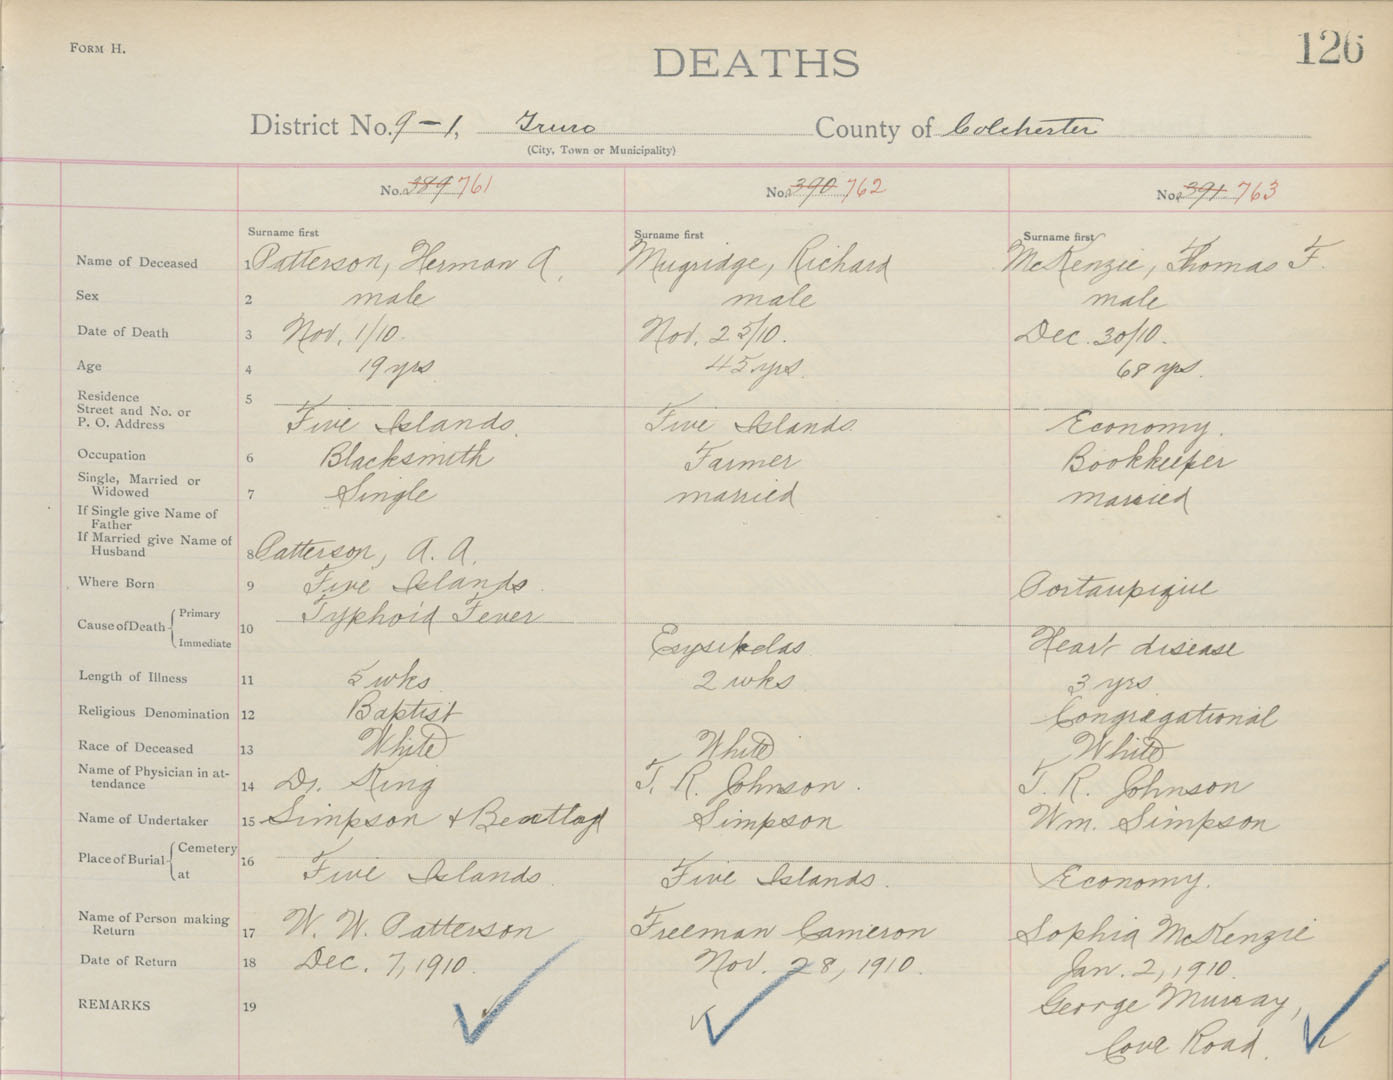 FORM H.
DEATHS
126
District No. 9-1, Truro County of Colchester
(City, Town or Municipality)
No. 389 761 No. 390 762 No. 391 763
Surname first Surname first Surname first
Name of Deceased 1 Patterson, Herman A. Mugridge, Richard McKenzie, Thomas F.
Sex 2 male male male
Date of Death 3 Nov. 1/10. Nov. 25/10. Dec. 30/10.
Age 4 19 yrs 45 yrs. 68 yrs.
Residence 5
Street and No. or
P. O. Address Five Islands. Five Islands. Economy.
Occupation 6 Blacksmith Farmer Bookkeeper
Single, Married or
Widowed 7 Single married married
If Single give Name of
Father
If Married give Name of
Husband 8 Patterson, A. A.
Where Born 9 Five Islands. Portaupique
Cause of Death Primary Typhoid Fever
10
Immediate Erysipelas Heart disease
Length of Illness 11 5 wks 2 wks 3 yrs
Religious Denomination 12 Baptist Congregational
Race of Deceased 13 White White White
Name of Physician in at-
tendance 14 Dr. King T. R. Johnson. T. R. Johnson
Name of Undertaker 15 Simpson & Simpson Wm. Simpson
Place of Burial Cemetery 16
at Five Islands. Five Islands. Economy.
Name of Person making
Return 17 W. W. Patterson Freeman Cameron Sophia McKenzie
Date of Return 18 Dec. 7, 1910. Nov. 28, 1910. Jan. 2, 1910.
REMARKS 19 George Murray,
Cove Road.